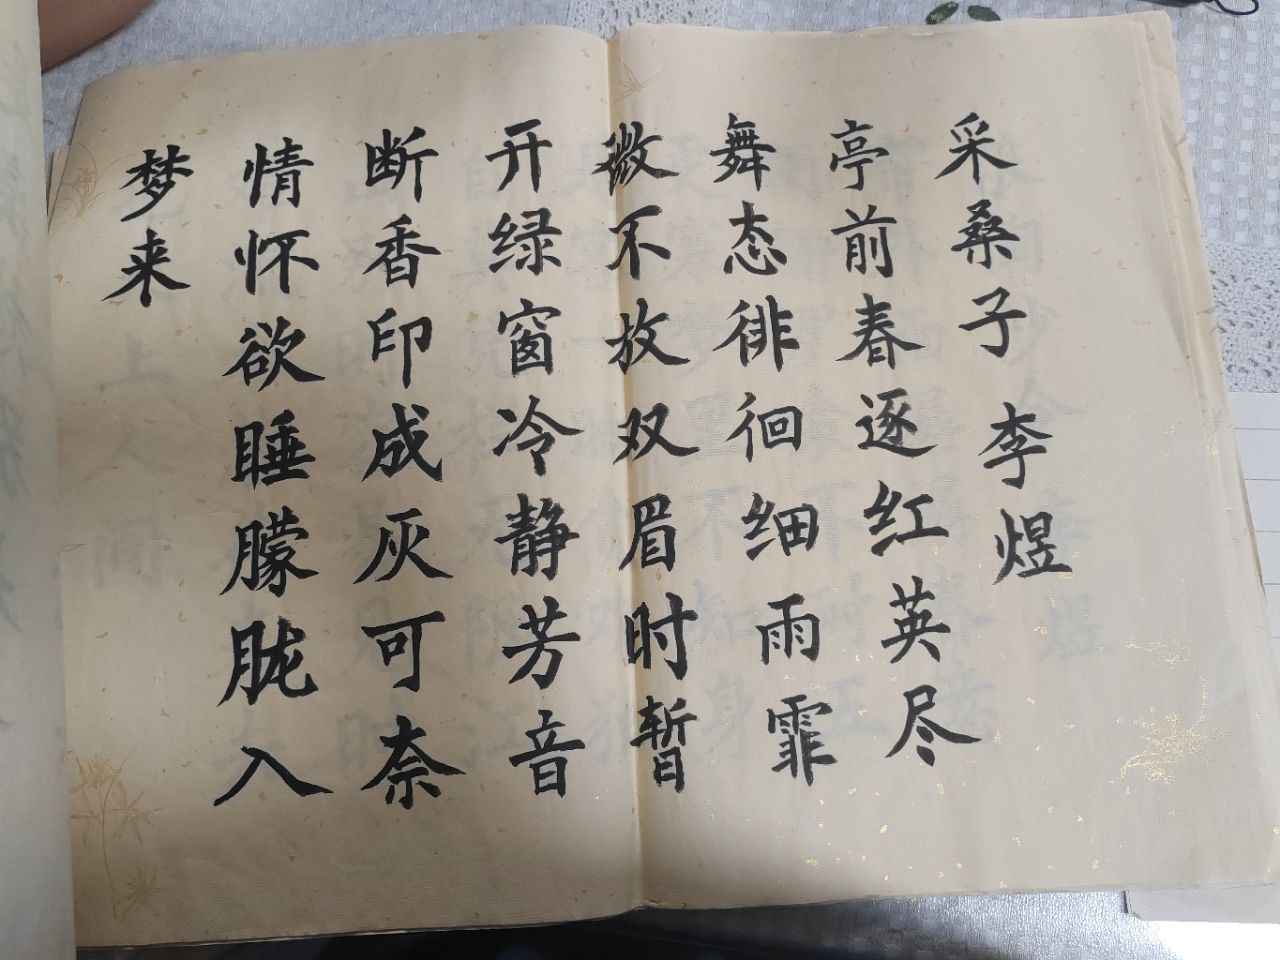 采桑子 李煜
亭前春逐红英尽
舞态徘徊细雨霏
微不放双眉时暂
开绿窗冷静芳音
断香印成灰可奈
情怀欲睡朦胧入
梦来